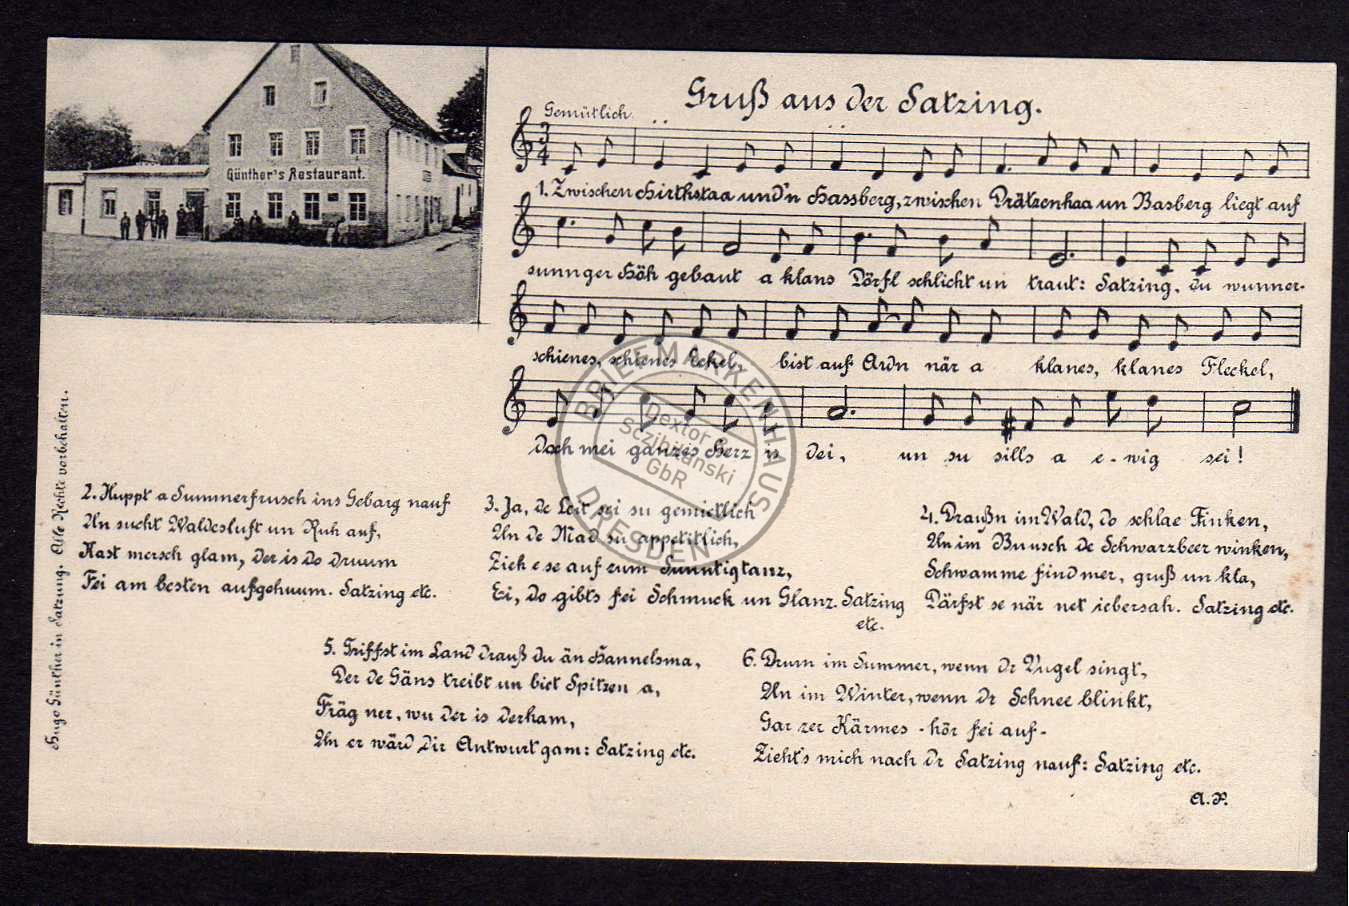 Gruß aus der Satzing.
Gemütlich.
Günther's Restaurant.
1. Zwischen Hirthstaa und'n Hassberg, zwischen Prätzenhaa un Basberg liegt auf
sunnger Höh gebaut a klans Dörfl schlicht un traut: Satzing, du wunner-
schienes, schienes Eckel, bist auf Ardn när a klanes, klanes Fleckel,
Doch mei ganzes Herz is dei, un su sills a e-wig sei!
BRIEFMARKENHAUS
Dextor &
Sczibilanski
GbR
DRESDEN
2. Kuppt a Summerfrusch ins Gebarg nauf
Un sucht Waldesluft un Ruh auf,
Hast mersch glam, der is do druum
Fei am besten aufgehuum. Satzing etc.
3. Ja, de Leit sei su gemietlich
Un de Mad su appetitlich,
Zieh e se auf zum Sunntigtanz,
Ei, do gibts fei Schmuck un Glanz. Satzing
etc.
4. Draußn im Wald, do schlae Finken,
Un im Buusch de Schwarzbeer winken,
Schwamme find mer, gruß un kla,
Därfst se när net iebersah. Satzing etc.
5. Triffst im Land drauß du än Hannelsma,
Der de Gäns treibt un biet Spitzen a,
Fräg ner, wu der is derham,
Un er wärd dir Antwurt gam: Satzing etc.
6. Drum im Summer, wenn dr Vugel singt,
Un im Winter, wenn dr Schnee blinkt,
Gar zer Kärmes - hör fei auf -
Zieht's mich nach dr Satzing nauf: Satzing etc.
Hugo Günther in Satzung. Alle Rechte vorbehalten.